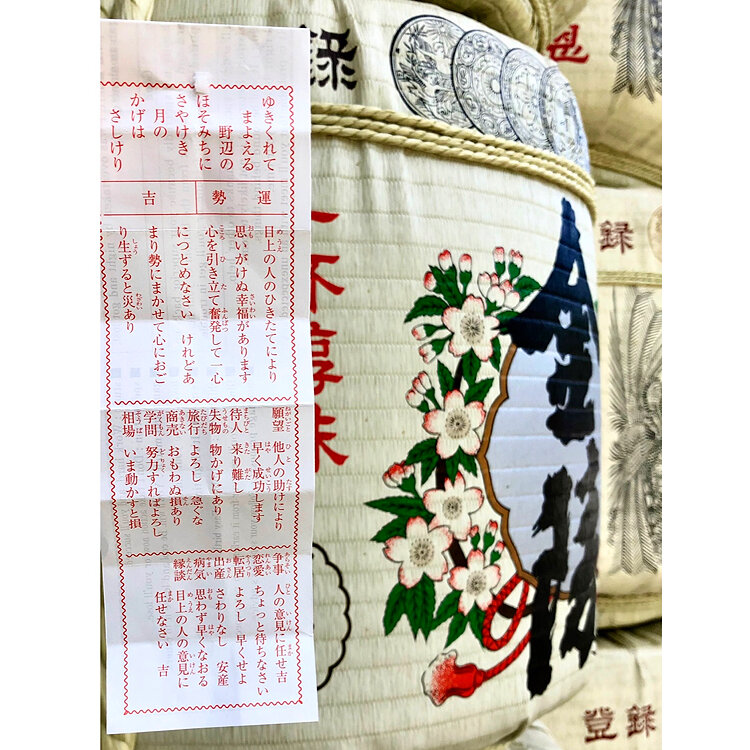 ゆきくれて
まよえる
野辺の
ほそみちに
さやけき
月の
かげは
さしけり
運勢
吉
目上の人のひきたてにより
思いがけぬ幸福があります
心を引き立て奮発して一心
につとめなさい けれどあ
まり勢にまかせて心におご
り生ずると災あり
願望 他人の助けにより
早く成功します
待人 来り難し
失物 物かげにあり
旅行 よろし 急ぐな
商売 おもわぬ損あり
学問 努力すればよろし
相場 いま動かすと損
争事 人の意見に任せ吉
恋愛 ちょっと待ちなさい
転居 よろし 早くせよ
出産 さわりなし 安産
病気 思わず早くなおる
縁談 目上の人の意見に
任せなさい 吉
録
醇味
録
登録